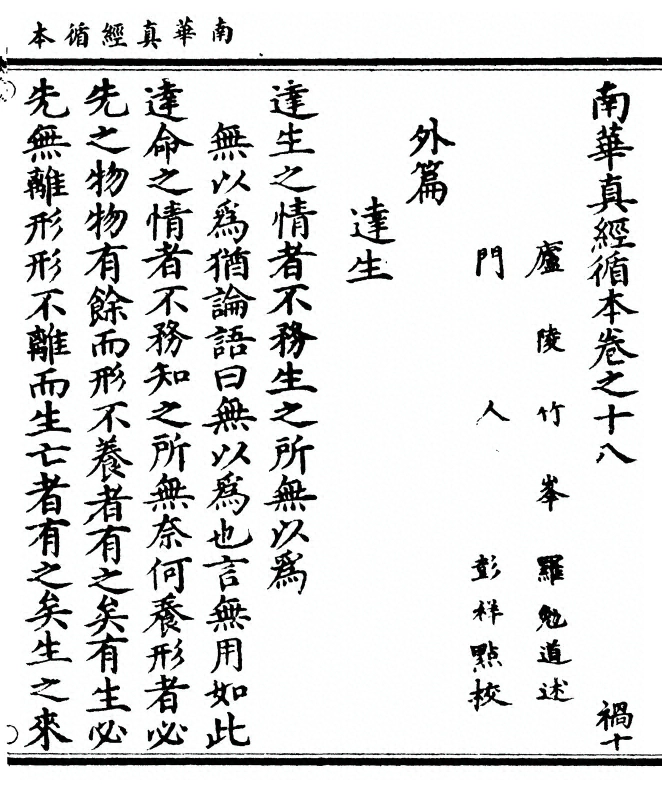 南華真經循本
南華真經循本卷之十八 禍十
廬陵竹峯羅勉道述
門人彭祥點校
外篇
達生
達生之情者不務生之所無以爲
無以爲猶論語曰無以爲也言無用如此
達命之情者不務知之所無奈何養形者必
先之物物有餘而形不養者有之矣有生必
先無離形形不離而生亡者有之矣生之來